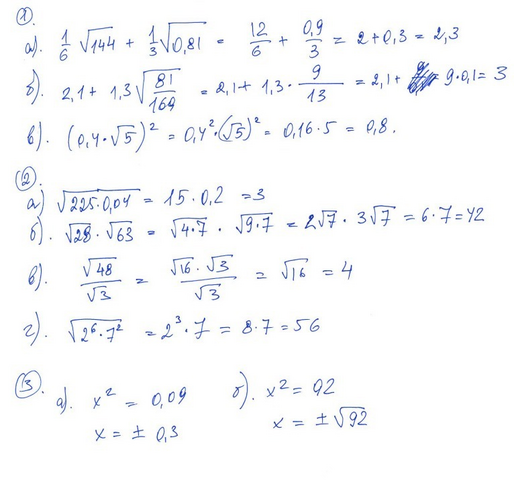 1.
а). 1/6 √144 + 1/3 √0,81 = 12/6 + 0,9/3 = 2 + 0,3 = 2,3
б). 2,1 + 1,3 √(81/169) = 2,1 + 1,3 · 9/13 = 2,1 + 9·0,1 = 3
в). (0,4·√5)² = 0,4²·(√5)² = 0,16·5 = 0,8.
2.
а) √(225·0,04) = 15·0,2 = 3
б). √28 · √63 = √(4·7) · √(9·7) = 2√7 · 3√7 = 6·7 = 42
в). √48/√3 = (√16 · √3)/√3 = √16 = 4
г). √(2⁶·7²) = 2³·7 = 8·7 = 56
3.
а). x² = 0,09 б). x² = 92
x = ± 0,3 x = ±√92